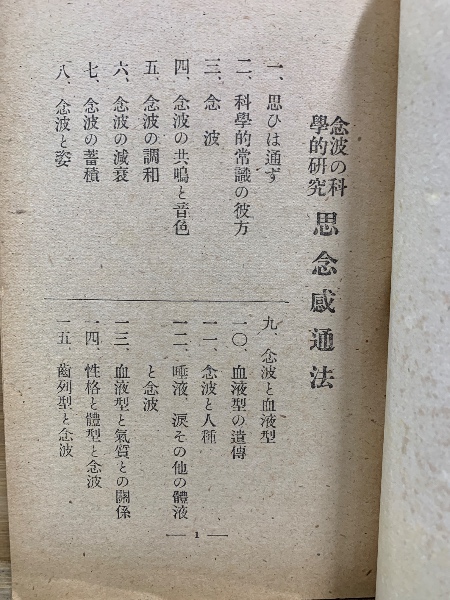 念波の科
學的研究
思念感通法
一、思ひは通ず
二、科學的常識の彼方
三、念波
四、念波の共鳴と音色
五、念波の調和
六、念波の減衰
七、念波の蓄積
八、念波と姿
九、念波と血液型
一〇、血液型の遺傳
一一、念波と人種
一二、唾液、淚その他の體液
と念波
一三、血液型と氣質との關係
一四、性格と體型と念波
一五、齒列型と念波
— 1 —